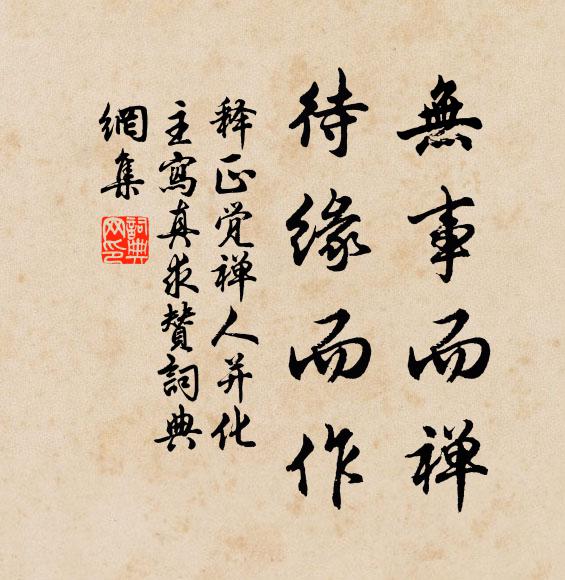 無事而禅
待緣而作
释正觉禅人并化
主寫真求贊詞典
網集
詞典
网印